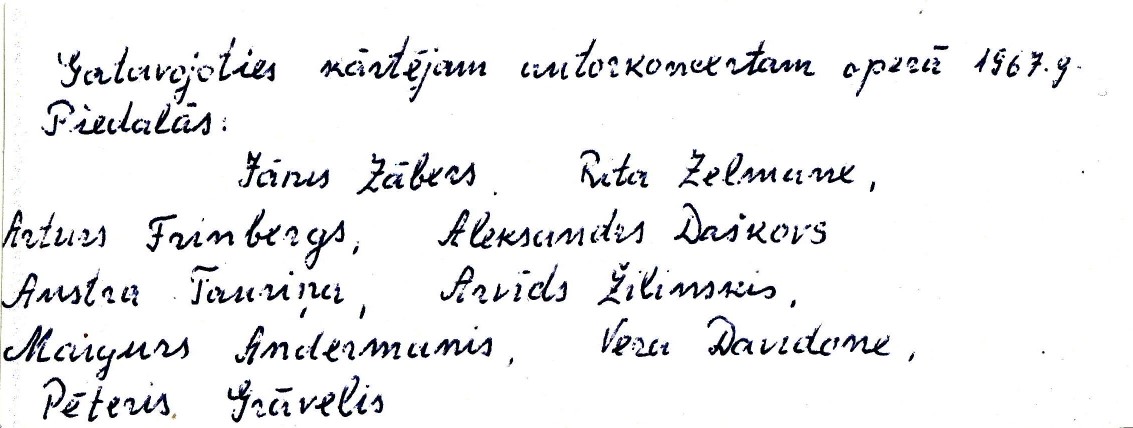 Gatavojoties kārtējam autorkoncertam operā 1967.g.
Piedalās:
Jānis Zābers. Rita Zelmane,
Arturs Frinbergs, Aleksandrs Daškovs
Austra Tauriņa, Arvīds Žilinskis,
Maigurs Andermanis, Vera Davidone,
Pēteris Grāvelis